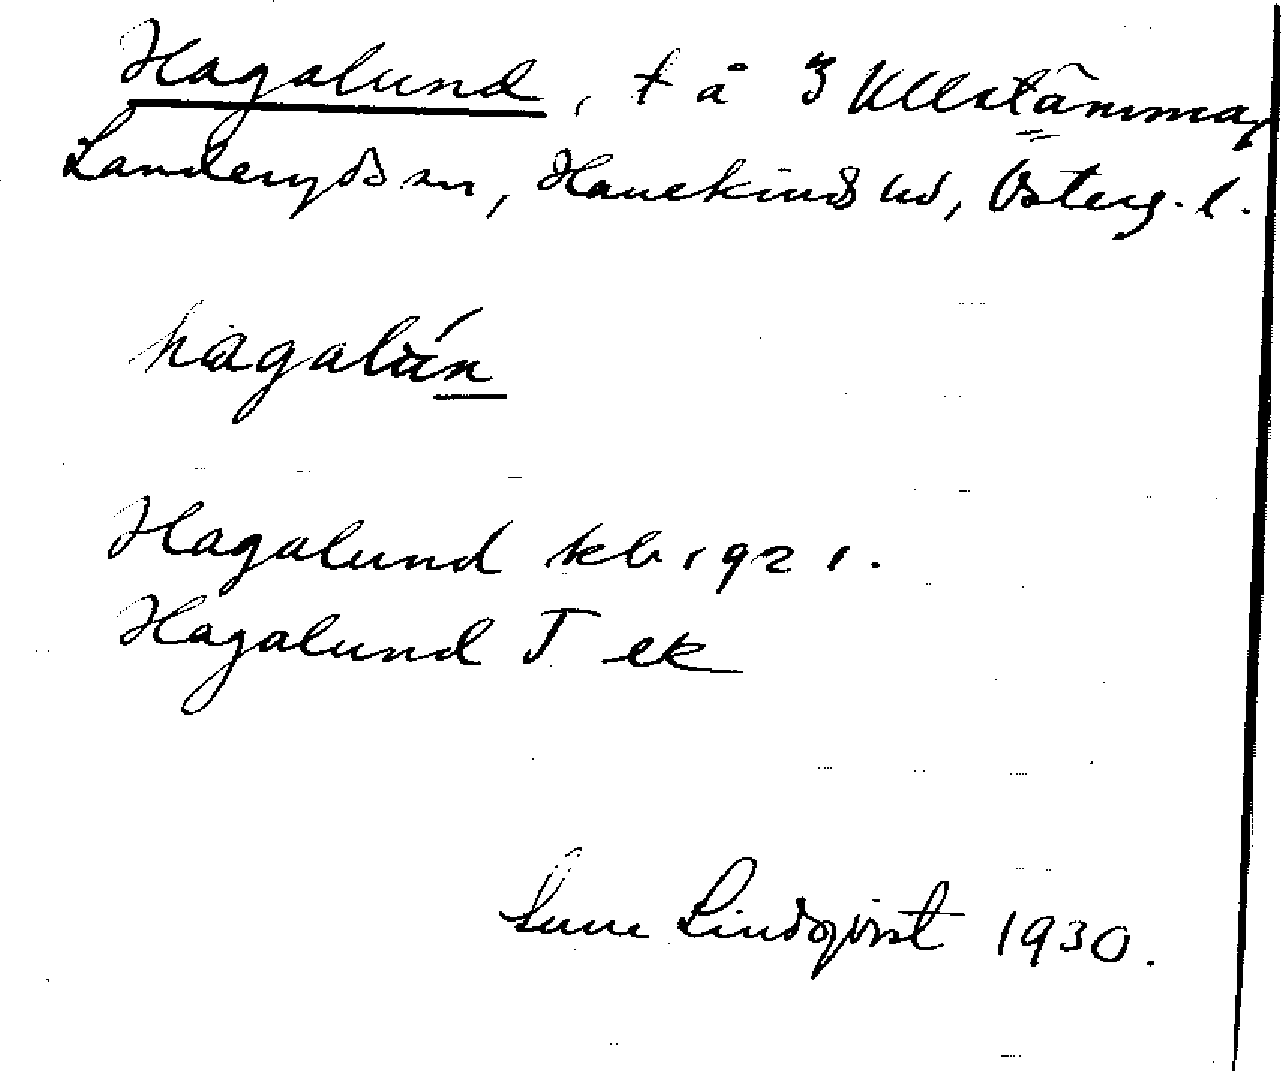 Hagalund, t å 3 Ullstämma,
Landeryds sn, Hanekinds hd, Österg. l.
hagalún
Hagalund kb 1921.
Hagalund T ek
Sune Lindqvist 1930.